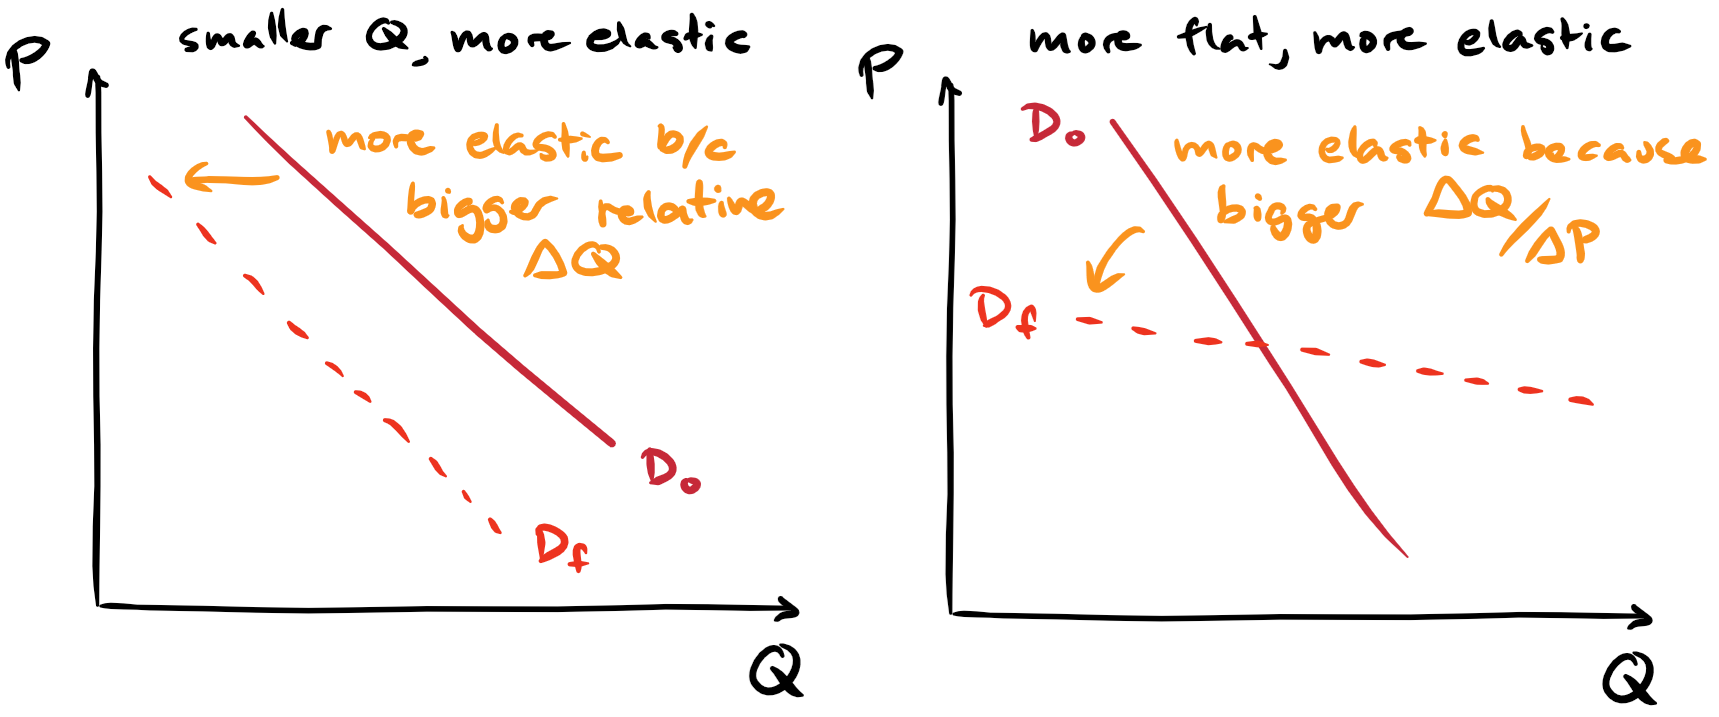 smaller Q, more elastic
P
more elastic b/c
bigger relative
ΔQ
D₀
D_f
Q
more flat, more elastic
P
D₀
more elastic because
bigger ΔQ/ΔP
D_f
Q